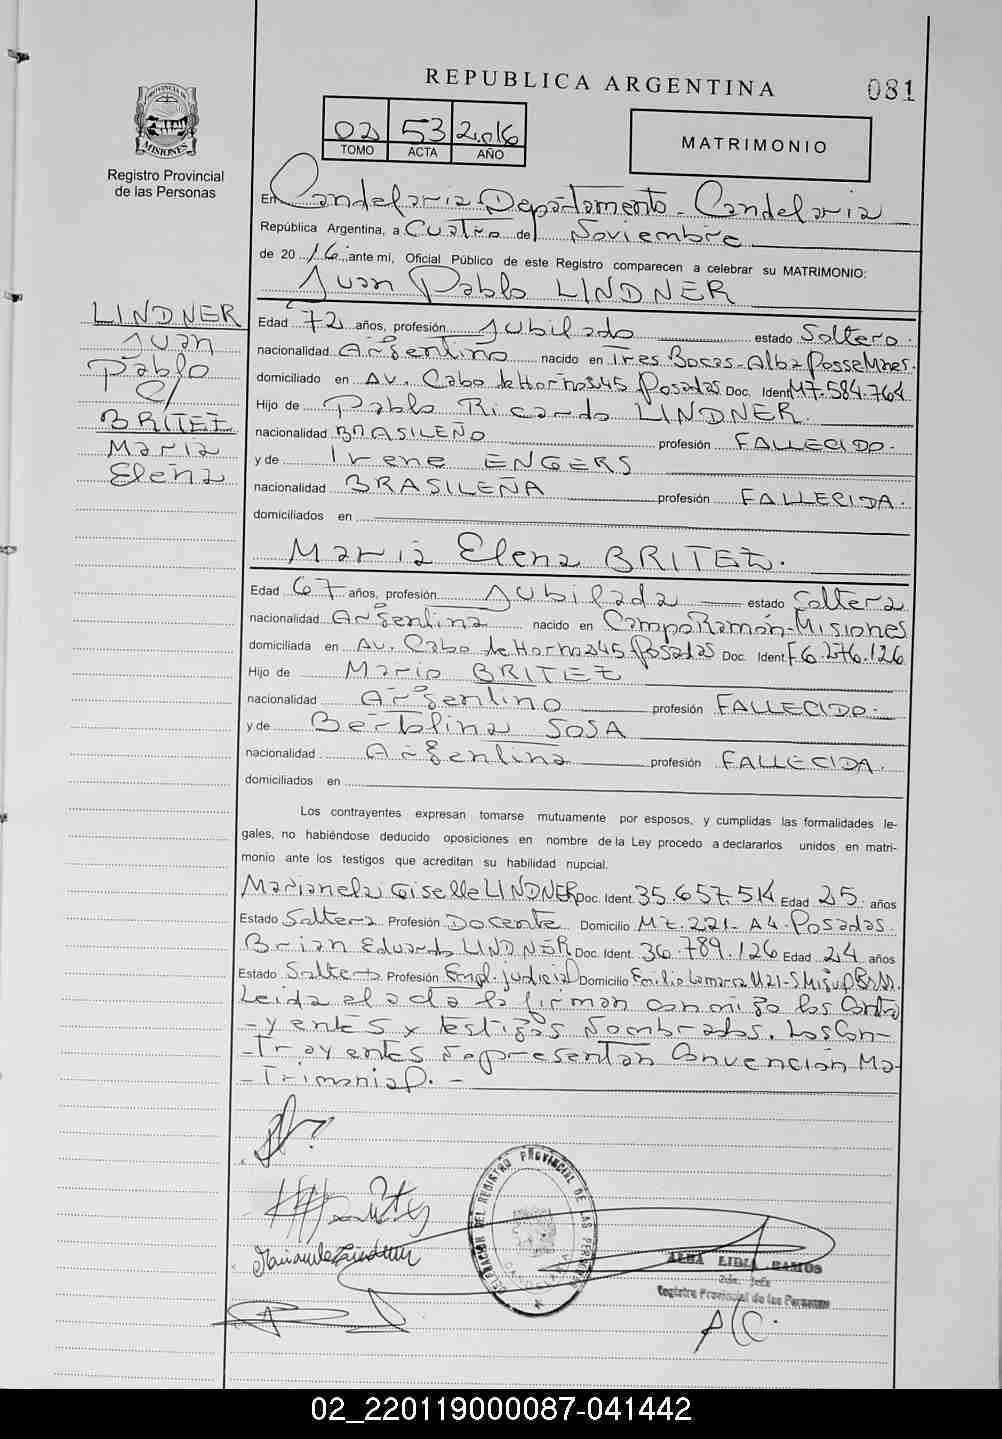 REPUBLICA ARGENTINA
081
02 53 2.016
TOMO ACTA AÑO
MATRIMONIO
PROVINCIA DE
MISIONES
Registro Provincial
de las Personas
En Candelaria Departamento Candelaria
República Argentina, a Cuatro de Noviembre
de 20 16 ante mi, Oficial Público de este Registro comparecen a celebrar su MATRIMONIO:
Juan Pablo LINDNER
LINDNER
Juan
Pablo
C/
BRITEZ
Maria
Elena
Edad 72 años, profesión Jubilado estado Soltero.
nacionalidad Argentino nacido en Tres Bocas-Alba Posse Mnes.
domiciliado en Av. Cabo de Hornos 245 Posadas Doc. Ident M7.584.764
Hijo de Pablo Ricardo LINDNER
nacionalidad BRASILEÑO profesión FALLECIDO.
y de Irene ENGERS
nacionalidad BRASILEÑA profesión FALLECIDA.
domiciliados en
Maria Elena BRITEZ.
Edad 67 años, profesión Jubilada estado Soltera
nacionalidad Argentina nacido en Campo Ramón-Misiones
domiciliada en Av. Cabo de Hornos 245 Posadas Doc. Ident. F6.276.126
Hijo de Mario BRITEZ
nacionalidad Argentino profesión FALLECIDO.
y de Bertolina SOSA
nacionalidad Argentina profesión FALLECIDA.
domiciliados en
Los contrayentes expresan tomarse mutuamente por esposos, y cumplidas las formalidades le-
gales, no habiéndose deducido oposiciones en nombre de la Ley procedo a declararlos unidos en matri-
monio ante los testigos que acreditan su habilidad nupcial.
Marianela Giselle LINDNER Doc. Ident. 35.657.514 Edad 25 años
Estado Soltera Profesión Docente Domicilio Mz. 221- A4. Posadas.
Brian Eduardo LINDNER Doc. Ident. 36.789.126 Edad 24 años
Estado Soltero Profesión Empl. Judicial Domicilio
Leida el acta la firman conmigo los Contra
-yentes y testigos Nombrados. Los Con-
-trayentes No presentan Convención Ma-
-trimonial. -
DELEGACION DEL REGISTRO PROVINCIAL DE LAS PERSONAS
CANDELARIA
ALBA LIDIA RAMOS
2da. Jefa
Registro Provincial de las Personas
02_220119000087-041442